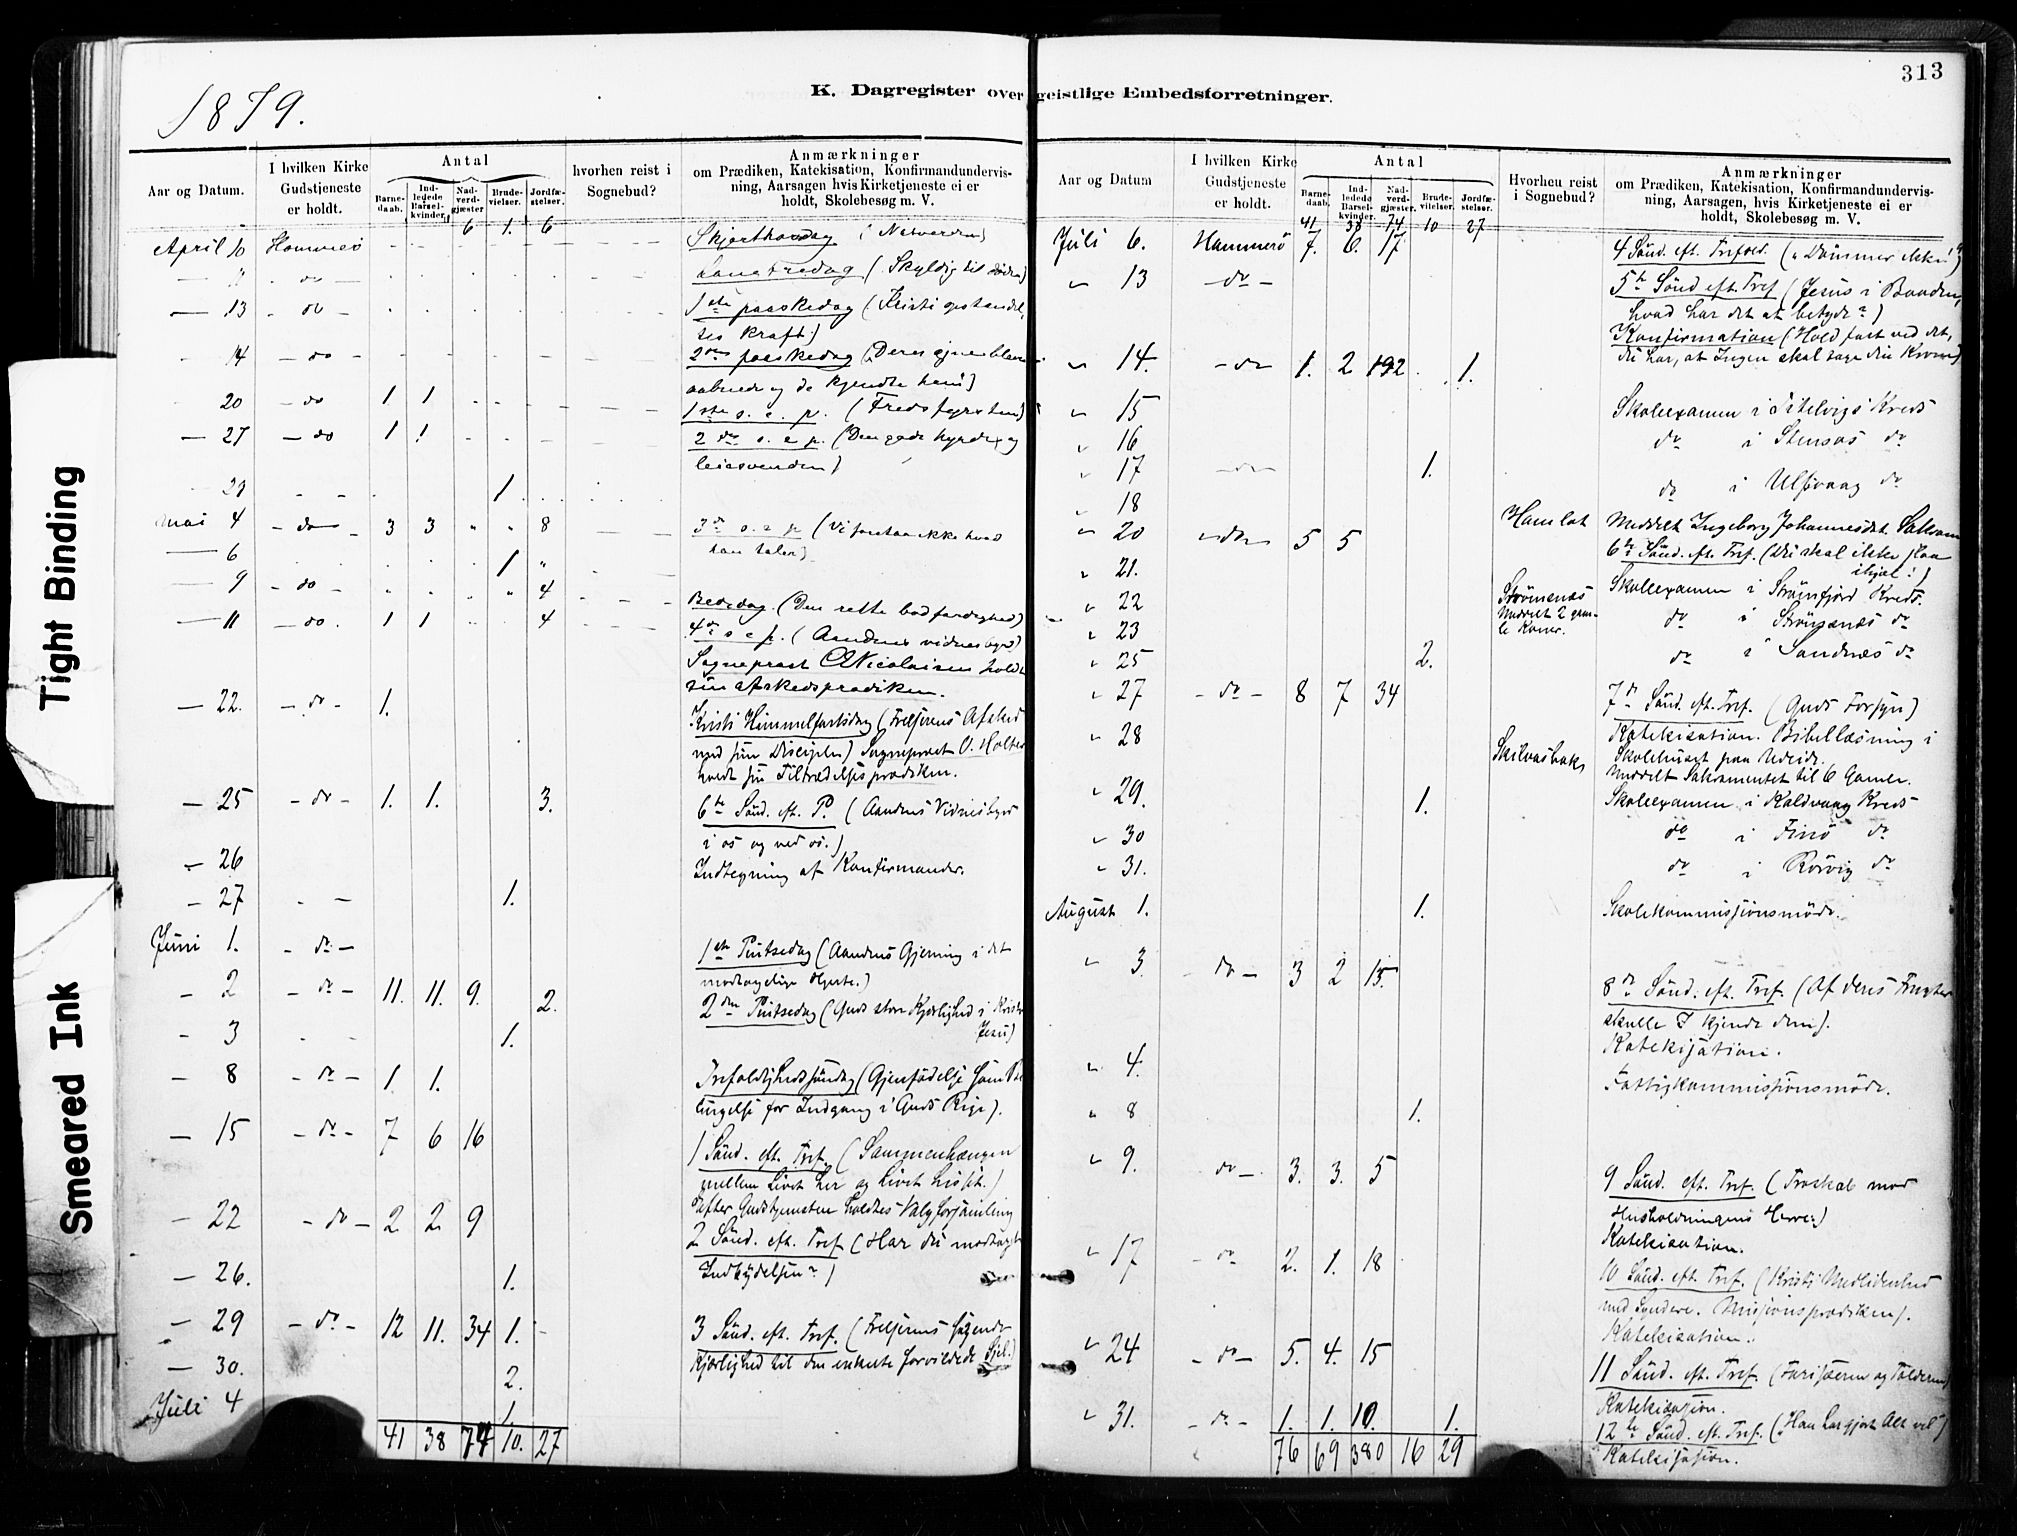 Tight Binding
Smeared Ink
313
K. Dagregister over geistlige Embedsforretninger.
1879.
Aar og Datum.
I hvilken Kirke Gudstjeneste er holdt.
Antal
Barne-daab.
Ind-ledede Barsel-kvinder.
Nad-verd-gjæster
Brude-vielser.
Jordfæ-stelser.
hvorhen reist i Sognebud?
Anmærkninger
om Prædiken, Katekisation, Konfirmandundervis-
ning, Aarsagen hvis Kirketjeneste ei er
holdt, Skolebesøg m. V.
6 1. 6
April 10 Hammerö Skjærthorsdag
" do Langfredag (Skyldig til döden)
13 do 1ste paaskedag (Kristi opstandel-
ses kraft)
14 do 2den paaskedag (Deres øjne bleve
aabnede og de kjendte ham)
20 do 1 1 1ste s. e. p. (Fredsfyrsten)
27 do 1 1 2den s. e. p. (Den gode hyrde og
leiesvenden)
29 1
Mai 4 do 3 3 " " 8 3de s. e. p (Vi forstaa ikke hvad
han taler)
6 1 "
9 do " 4 Bededag. (Den rette bodfærdighed)
11 do. 1 1 4 4de s e p. (Aandens vidnesbyrd)
Sogneprest Nicolaisen holdt
sin afskedsprædiken.
22. do 1. Kristi Himmelfartsdag (Frelserens Afsked
med sine Disciple) Sogneprest O. Holter
holdt sin Tiltrædelsesprædiken.
25 do 1. 1. 3. 6te Sönd. eft. P. (Aandens Vidnesbyrd
i os og ved os.)
26 Indtegning af Konfirmander.
27 1.
Juni 1. do 1ste Pintsedag (Aandens Gjerning i det
modtagelige Hjerte.)
2 do 11. 11. 9. 2. 2den Pintsedag (Guds store Kjærlighed i Kristo
Jesu)
3 1.
8 do 1. 1. Trefoldighedssöndag (Gjenfödelse som Be-
tingelse for Indgang i Guds Rige).
15 do 7 6 16 1 Sönd. eft. Tref. (Sammenhængen
mellem Livet her og Livet hisset.)
Efter Gudstjenesten holdtes Valgforsamling
22 do 2 2. 9 2 Sönd. eft. Tref (Har du modtaget
Indbydelsen?)
26. 1.
29 do 12 11. 34 1. 3 Sönd. eft. Tref. (Frelserens sögende
Kjærlighed til den enkelte forvildede Sjel.)
30. 2.
Juli 4 1.
41 38 74 10. 27
Aar og Datum
I hvilken Kirke Gudstjeneste er holdt.
Antal
Barne-daab.
Ind-ledede Barsel-kvinder.
Nad-verd-gjæster.
Brude-vielser.
Jordfæ-stelser.
Hvorhen reist i Sognebud?
Anmærkninger
om Prædiken, Katekisation, Konfirmandundervis-
ning, Aarsagen, hvis Kirketjeneste ei er
holdt, Skolebesøg m. V.
41 38 74 10 27
Juli 6. Hammerö 7. 6. 17 4 Sönd. eft. Trefold. ("Dömmer ikke!")
" 13 do 5te Sönd eft Tref (Jesus i Baaden,
hvad har det at betyde?)
Konfirmation (Hold fast ved det,
" 14. do 1. 2 192 1. du har, at Ingen skal tage din Krone)
" 15 Skoleexamen i Kreds
" 16 do i Stensas do
" 17 do 1.
do i Ulsvaag do
" 18 Hamlot Meddelt Ingeborg Johannesdat.
" 20 do 5 5 6te Sönd. eft. Tref. (Du skal ikke slaa
ihjel!)
" 21. Skoleexamen i Strömfjord Kreds.
" 22 Strömenæs
Meddelt 2 gam-
le Koner. do i Strömsnæs do
" 23 do i Sandnæs do
" 25 2.
" 27 do 8 7 34 7de Sönd. eft. Tref. (Guds Forsyn)
Katekisation. Bibellæsning i
" 28 Skilvasbak Skolehuset paa Uteide.
Meddelt Sakramentet til 6 Gamle.
" 29. 1. Skoleexamen i Kaldvaag Kreds
" 30 do i Finö do
" 31. do i Rörvig do
August 1. 1. Skolekommissionsmöde.
" 3. do 3 2 15. 8de Sönd. eft. Tref. (Af deres Frugter
skulle I kjende dem).
Katekisation.
" 4. Fattigkommissionsmöde.
" 8 1.
" 9. do 3. 3. 5 9 Sönd. eft. Tref. (Troskab mod
Husholdningens Herre)
Katekisation.
" 17 do 2. 1. 18 10 Sönd. eft. Tref. (Kristi Medlidenhed
med Syndere. Missionsprædiken).
Katekisation.
" 24 do 5. 4. 15 11 Sönd. eft. Tref. (Farisæeren og Tolderen)
Katekisasjon.
" 31. do 1. 1. 10. 1. 12te Sönd. eft. Tref. ("Han har gjort Alt vel")
Katekisasjon.
76 69 380 16 29